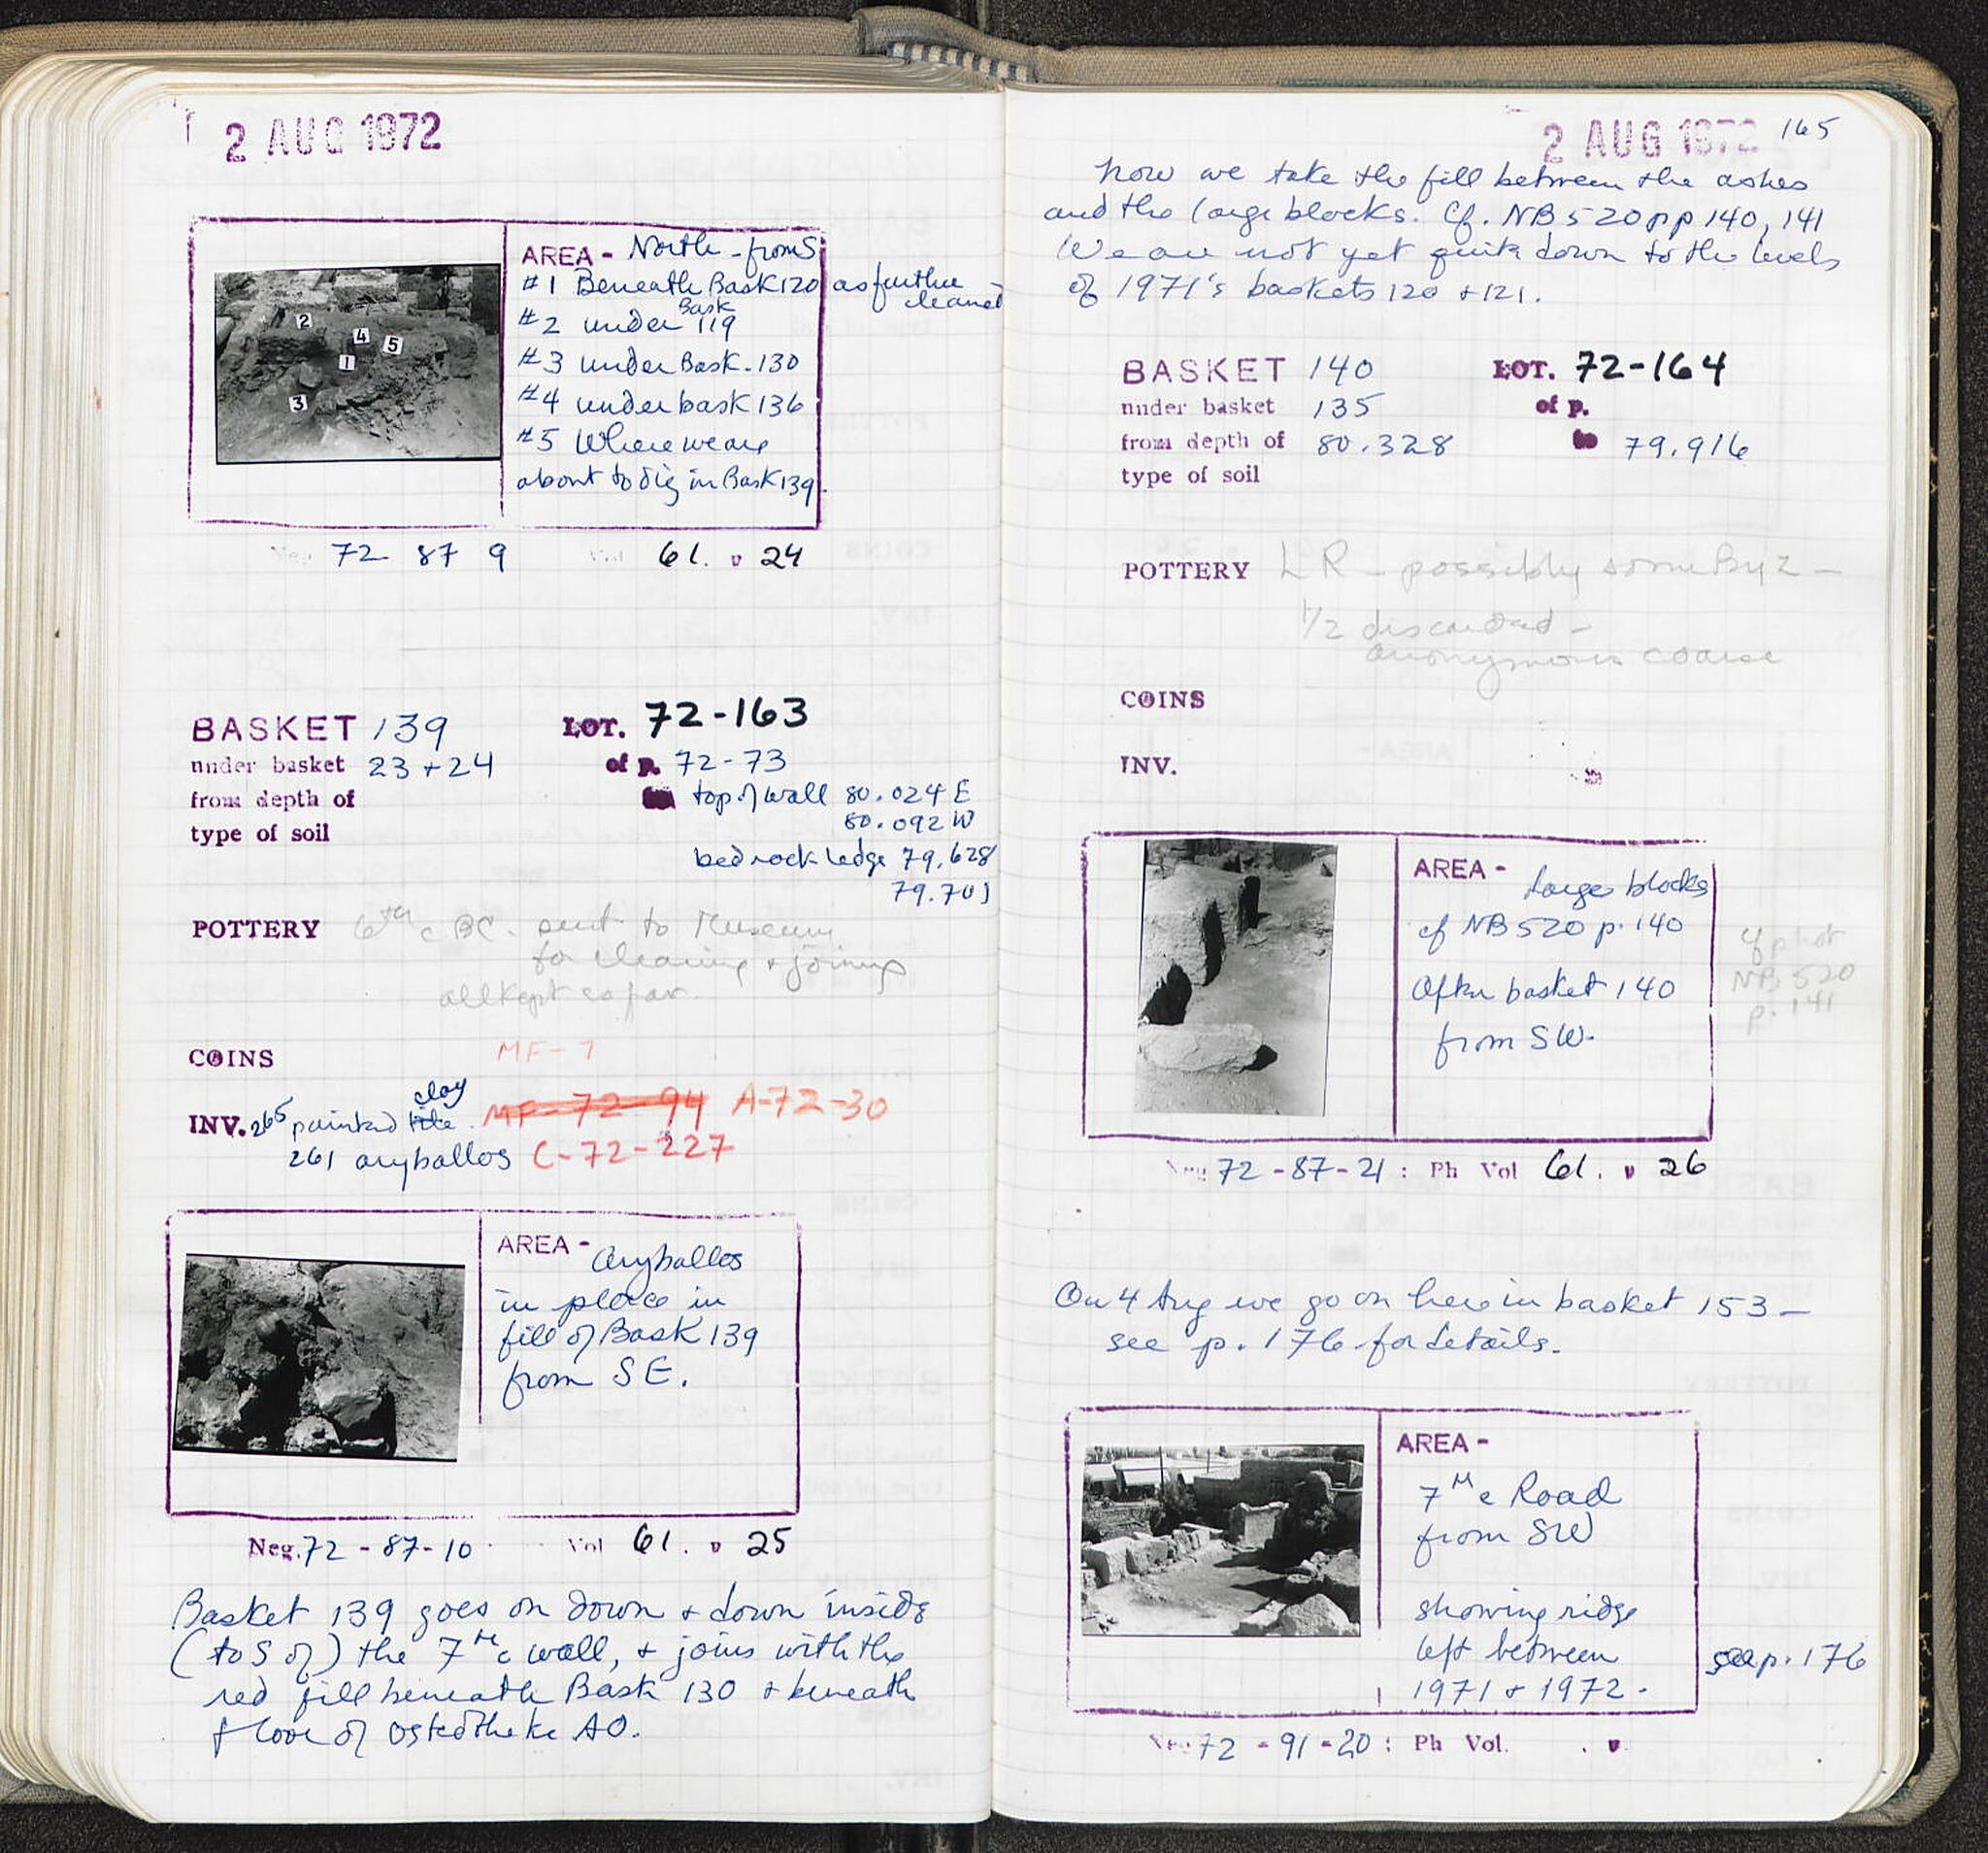 2 AUG 1972
AREA - North - from S
#1 Beneath Bask 120 as further cleaned
#2 under Bask 119
#3 under Bask. 130
#4 under bask 136
#5 Where we are
about to dig in Bask 139.
2
4
5
1
3
Neg. 72 87 9 Vol 61. p 24
BASKET 139 LOT. 72-163
under basket 23 + 24 of p. 72-73
from depth of top of wall 80.024 E
80.092 W
type of soil
bedrock ledge 79.628
79.701
POTTERY 6th c BC. sent to Museum
for cleaning + joining
all kept so far.
COINS MF-7
INV. 265 painted tile clay MF-72-94 A-72-30
261 aryballos C-72-227
AREA - Aryballos
in place in
fill of Bask 139
from SE.
Neg. 72 - 87 - 10 Vol 61. p 25
Basket 139 goes on down + down inside
(to S of) the 7th c wall, + joins with the
red fill beneath Bask 130 + beneath
floor of Osteotheke AO.
2 AUG 1972 165
Now we take the fill between the ashes
and the large blocks. Cf. NB 520 pp 140, 141
We are not yet quite down to the levels
of 1971's baskets 120 + 121.
BASKET 140 LOT. 72-164
under basket 135 of p.
from depth of 80.328 to 79.916
type of soil
POTTERY LR - possibly some Byz -
1/2 discarded -
anonymous coarse
COINS
INV.
AREA - Large blocks
cf NB 520 p. 140
After basket 140
from SW.
cf phot
NB 520
p. 141
Neg 72 - 87 - 21 : Ph Vol 61. p 26
On 4 Aug we go on here in basket 153 -
see p. 176 for details.
AREA -
7th c Road
from SW
showing ridge
left between
1971 + 1972.
see p. 176
Neg 72 - 91 - 20 : Ph Vol. . p